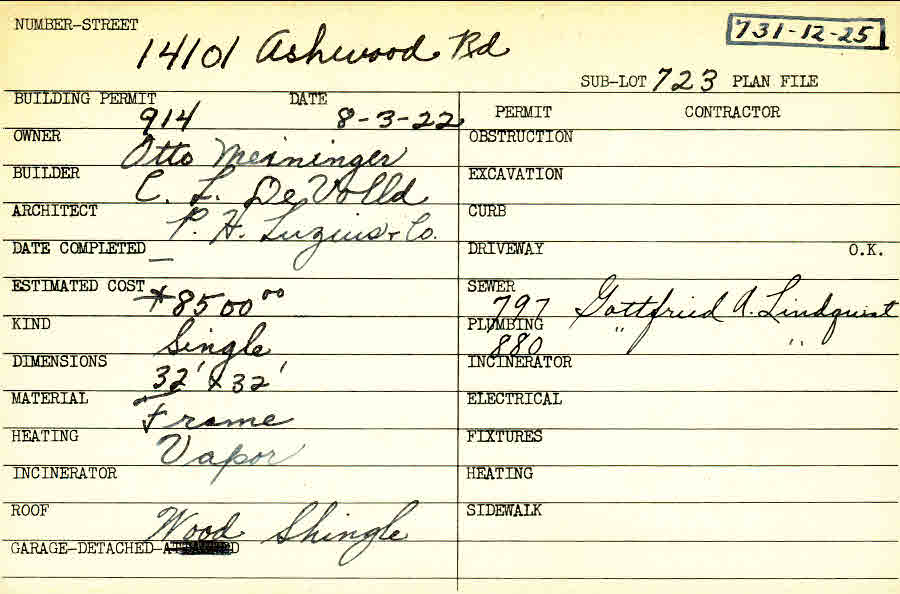 NUMBER-STREET
14101 Ashwood Rd
731-12-25
SUB-LOT 723 PLAN FILE
BUILDING PERMIT 914 DATE 8-3-22
PERMIT CONTRACTOR
OWNER Otto Meininger
OBSTRUCTION
BUILDER C. L. DeVolld
EXCAVATION
ARCHITECT P. H. Luzius & Co.
CURB
DATE COMPLETED —
DRIVEWAY O.K.
ESTIMATED COST $8500.00
SEWER 797 Gottfried A. Lindquist
KIND Single
PLUMBING 880 " "
DIMENSIONS 32' x 32'
INCINERATOR
MATERIAL Frame
ELECTRICAL
HEATING Vapor
FIXTURES
INCINERATOR
HEATING
ROOF Wood Shingle
SIDEWALK
GARAGE-DETACHED-